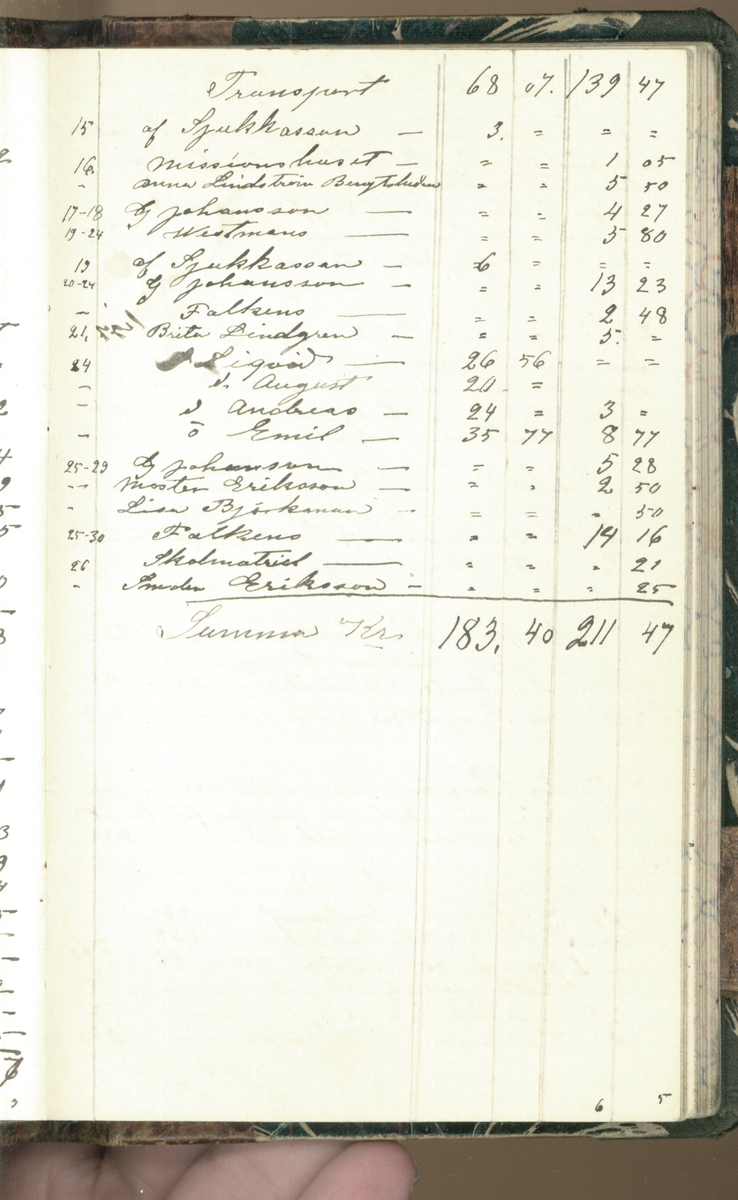 Transport 68 07. 139 47
15 af Sjukkassan — 3. = = =
16. Missionshuset — = = 1 05
" Anna Lindström = = 5 50
17-18 G Johansson — = = 4 27
19-24 Westmans — = = 5 80
19 af Sjukkassan — 6 = = =
20-24 G Johansson — = = 13 23
" Falkens — = = 2 48
21, Brita Lindgren — = = 5. =
24 Liqvid — 26 56 = =
" d. August 20 =
" d Andreas — 24 = 3 =
" d Emil — 35 77 8 77
25-29 G Johansson — = = 5 28
" Moster Eriksson — = = 2 50
" Lisa Björkman — = = " 50
25-30 Falkens — = = 14 16
26 Skolmatriel — = = " 21
" Smeden Eriksson — = = " 25
Summa Kr. 183, 40 211 47
6 5